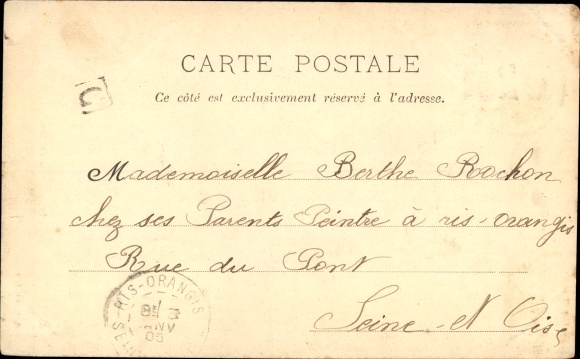 CARTE POSTALE
Ce côté est exclusivement réservé à l'adresse.
G
Mademoiselle Berthe Rochon
chez ses Parents Peintre à ris-orangis
Rue du Pont
Seine-et Oise
RIS-ORANGIS
JANV
05